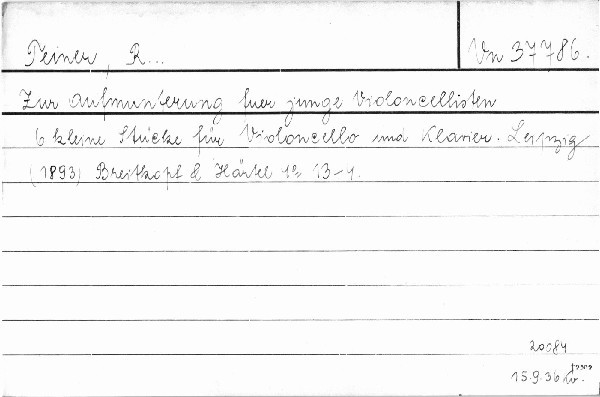 Peiner, R... Vn 37786.
Zur Aufmunterung fuer junge Violoncellisten
6 kleine Stücke für Violoncello und Klavier. Leipzig
(1893) Breitkopf & Härtel 1a 13-1.
20084
15.9.36